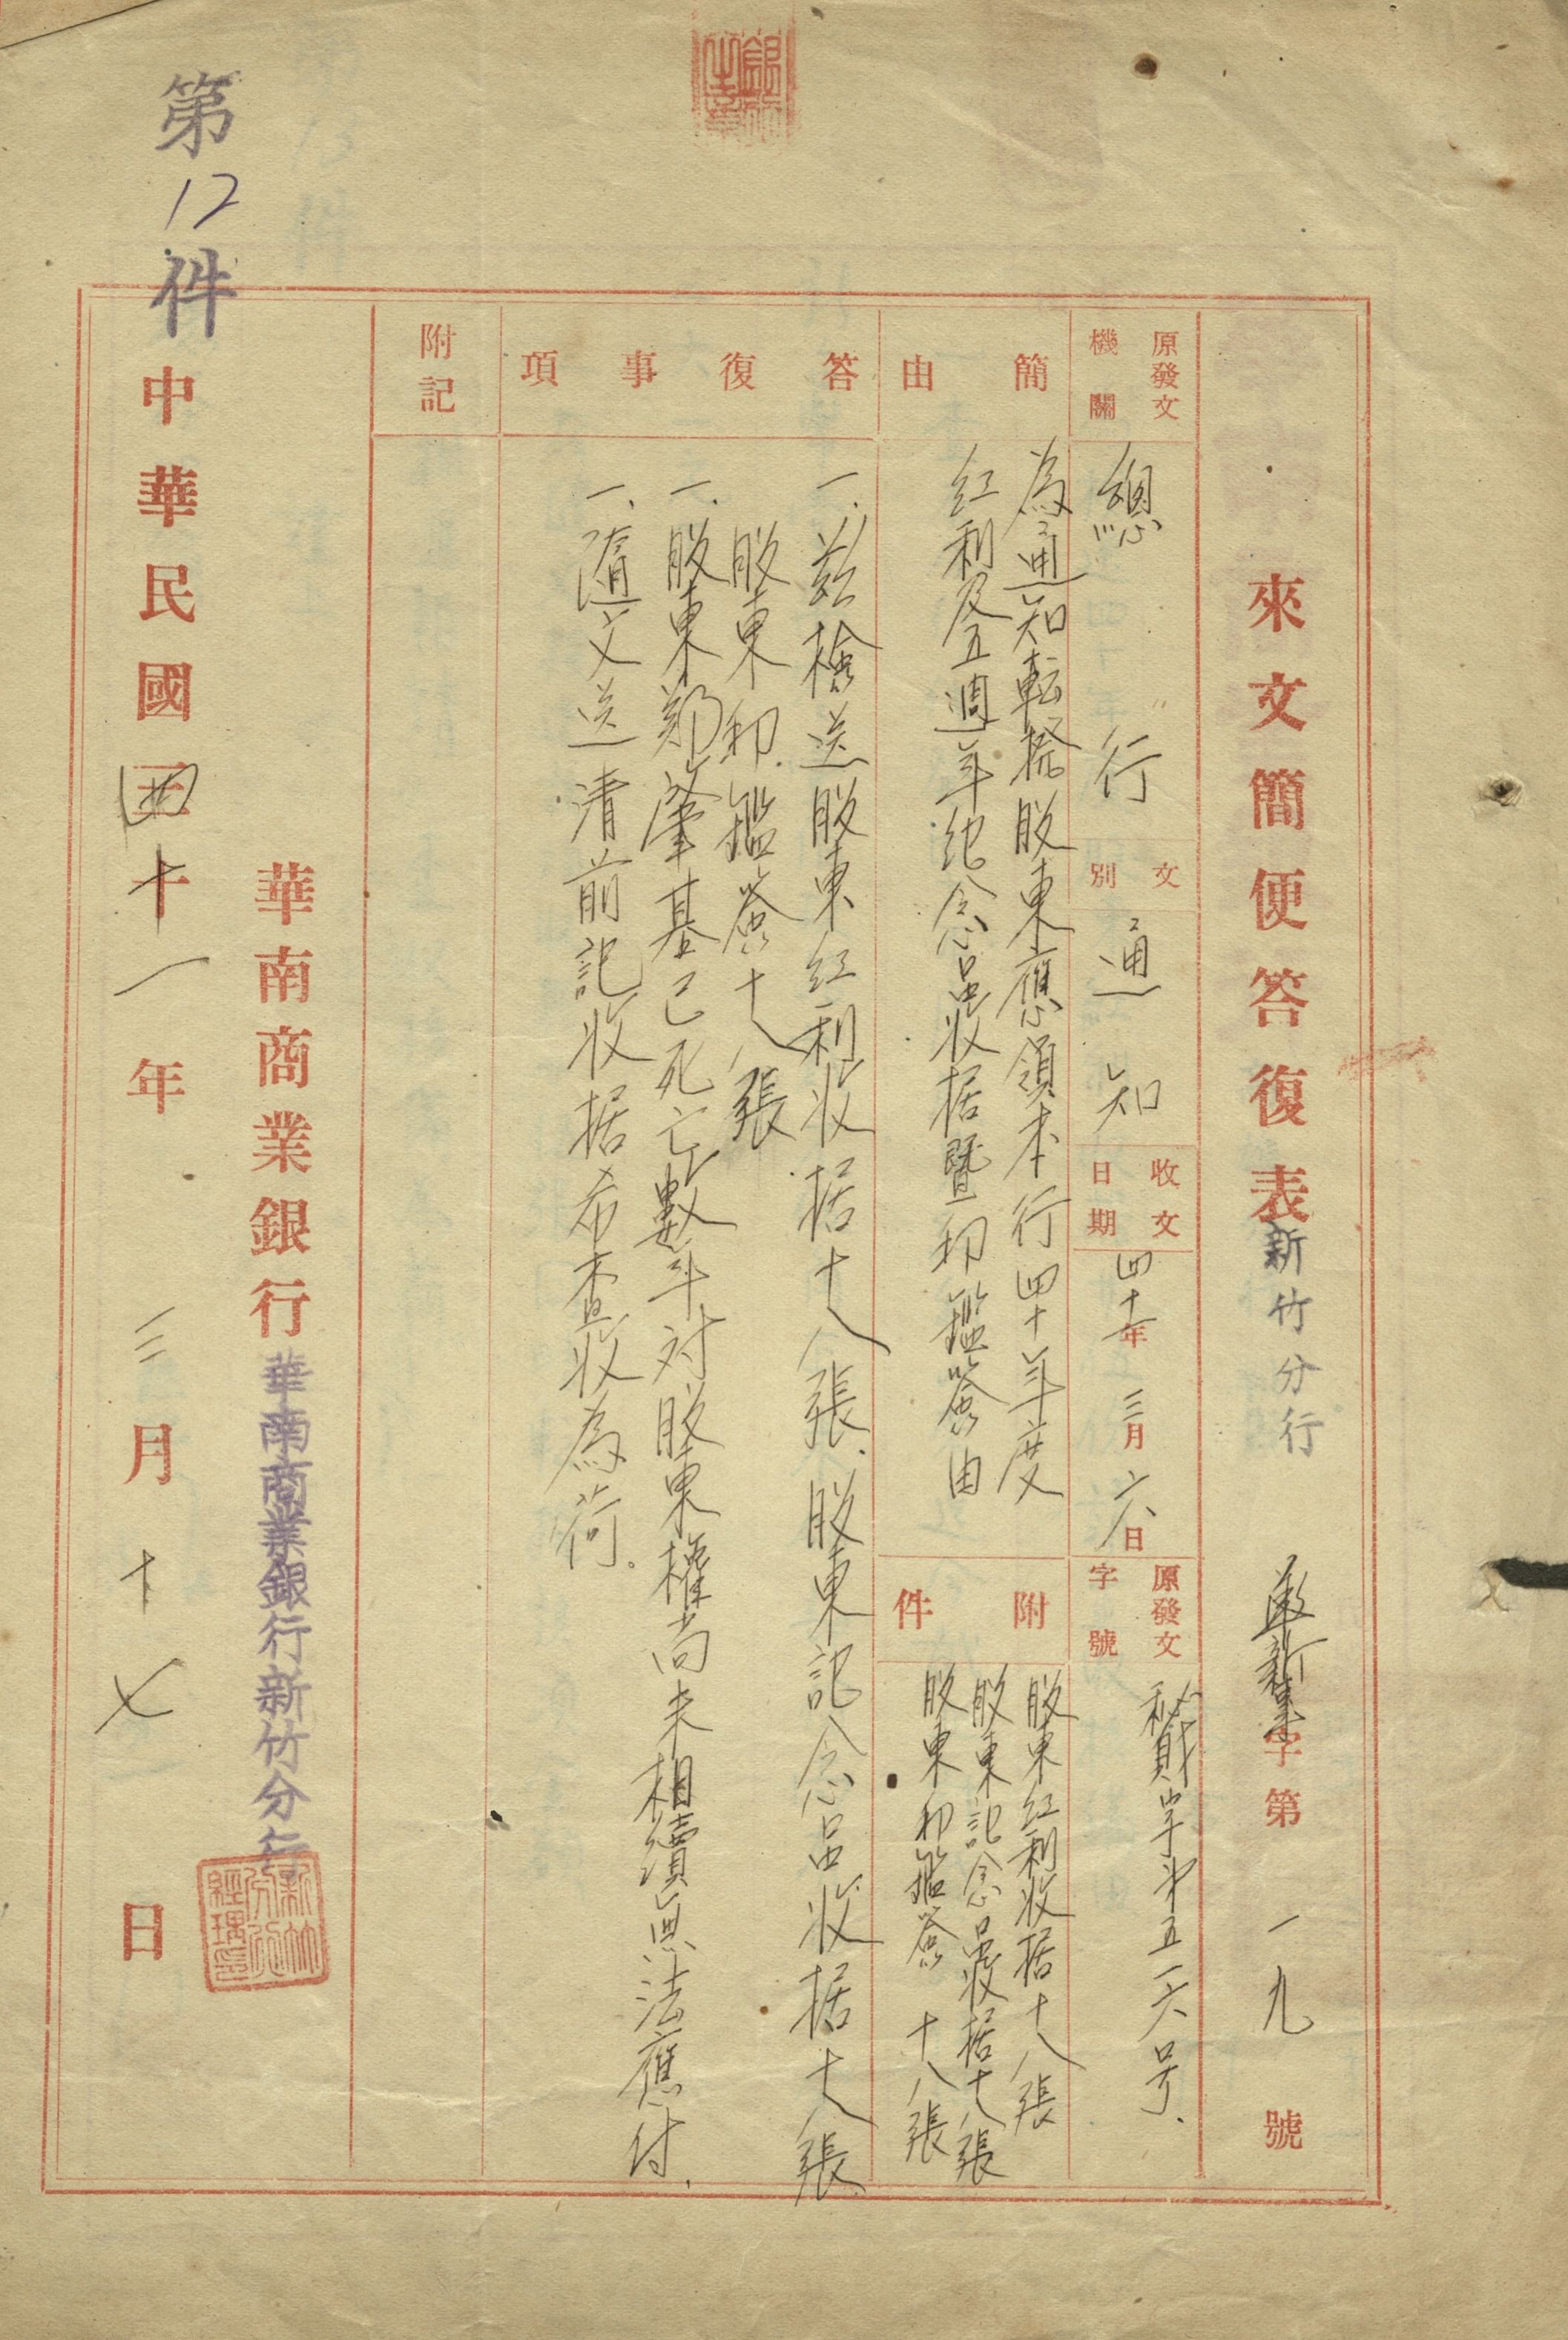 來文簡便答復表
新竹分行
字第一九號
原發文機關
總行
文別
通知
收文日期
四十一年三月六日
原發文字號
秘財字第五一六号
簡由
為通知転撥股東應領本行四十年度
紅利及五週年紀念品收据暨印鑑簽由
附件
股東紅利收据十八張
股東記念品收据十八張
股東印鑑簽 十八張
答復事項
一、茲檢送股東紅利收据十八張.股東記念品收据十八張.
股東印鑑簽十八張
一.股東鄭肇基已死亡數年対股東權尚未相續無法應付.
一、隨文送清前記收据希查收為荷。
附記
華南商業銀行
華南商業銀行新竹分行
中華民國四十一年三月十七日
第12件